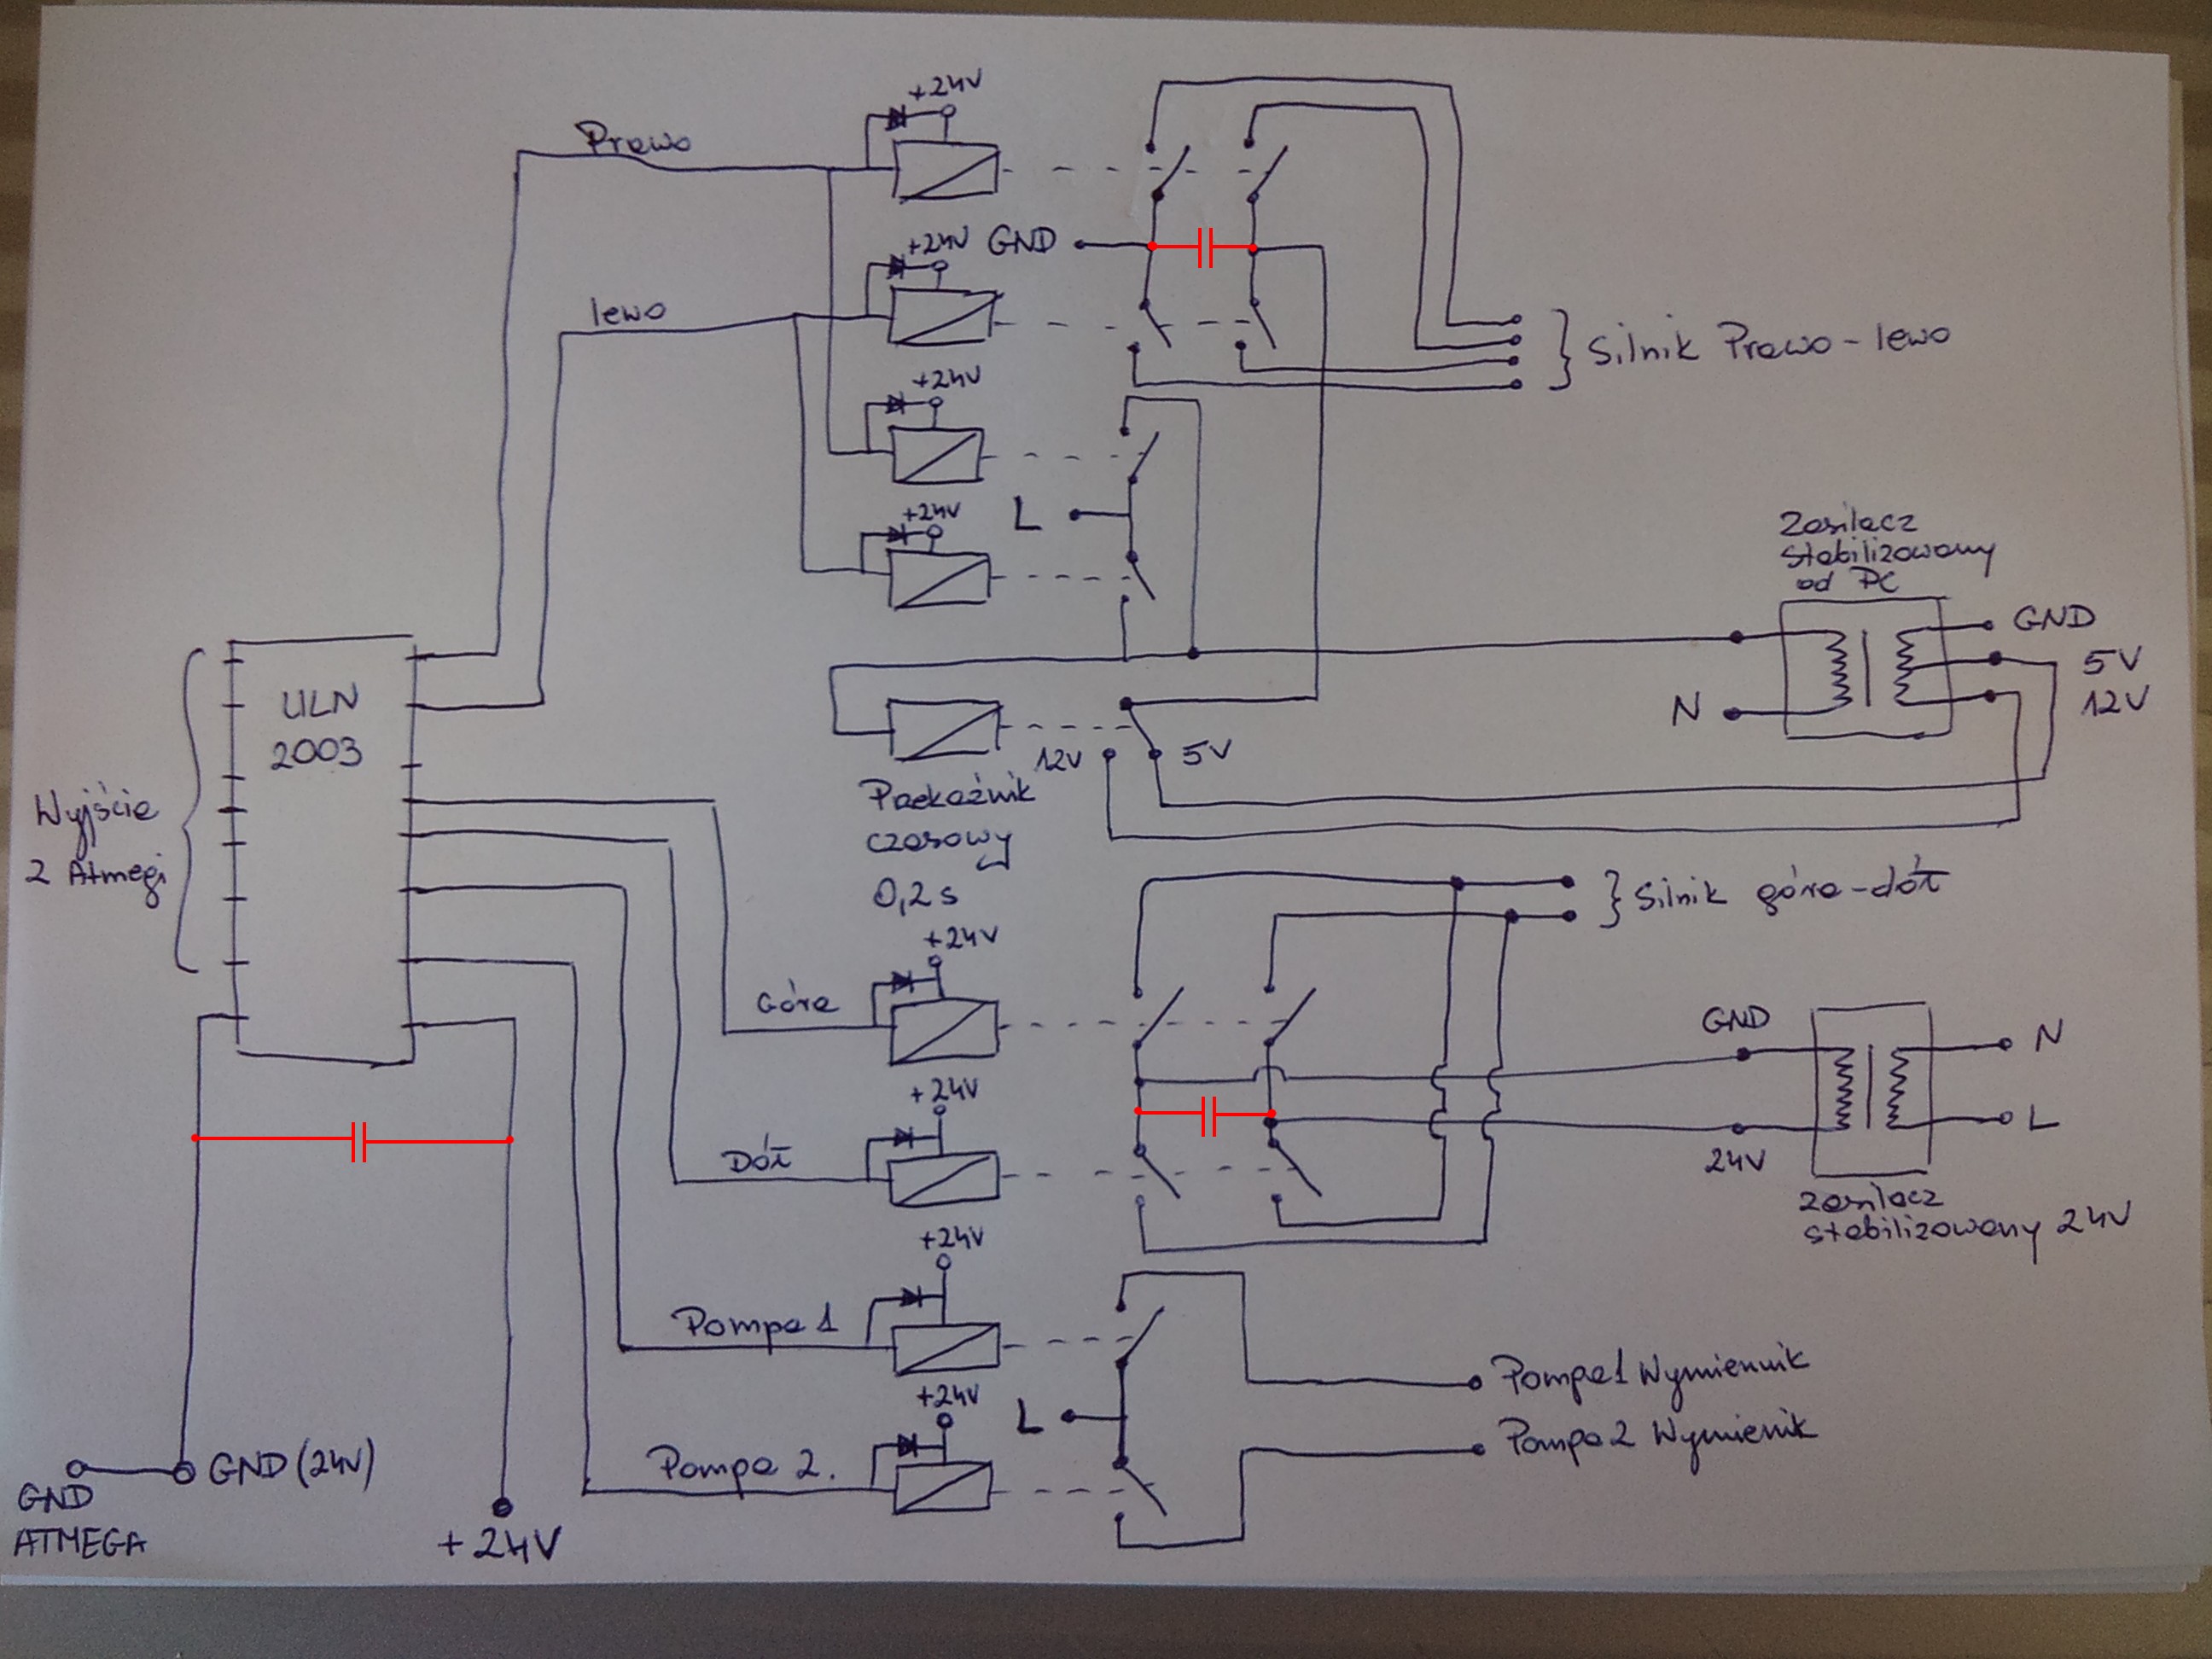 +24V
Prawo
+24V
GND
lewo
Silnik Prawo-lewo
+24V
+24V
L
Zasilacz
stabilizowany
od PC
GND
5V
12V
N
ULN
2003
Wyjścia
z Atmegi
12V
5V
Przekaźnik
czasowy
0,2s
Silnik góra-dół
+24V
Góra
GND
N
+24V
Dół
L
24V
Zasilacz
stabilizowany 24V
+24V
Pompa 1
Pompa 1 Wymiennik
+24V
L
Pompa 2 Wymienik
Pompa 2.
GND (24V)
GND
ATMEGA
+24V